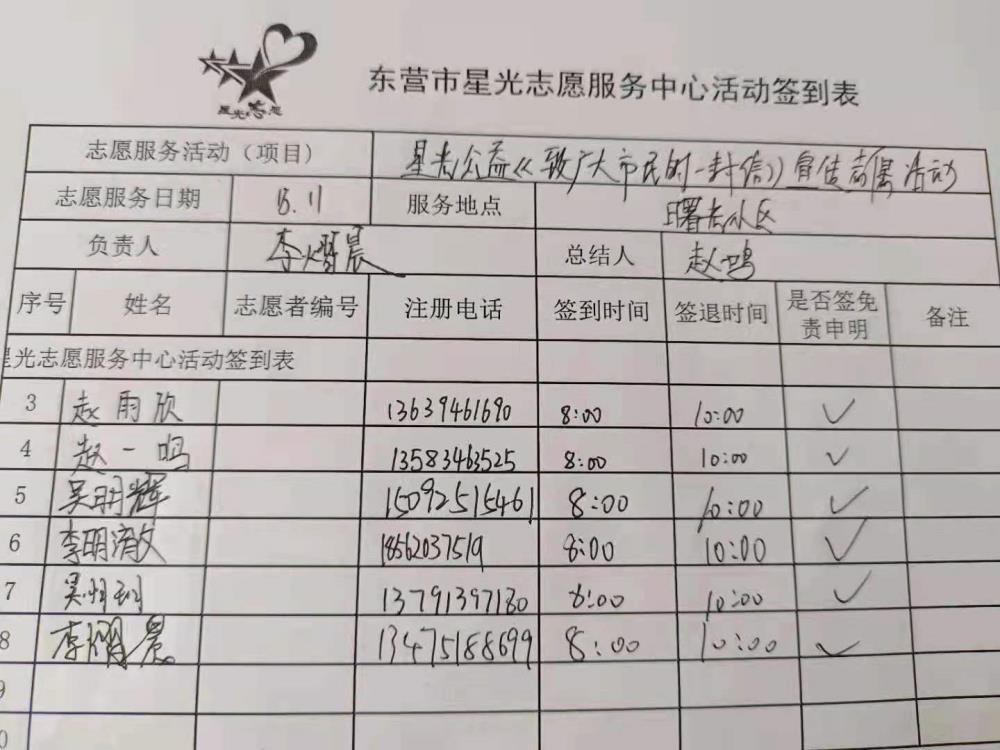 星光志愿
东营市星光志愿服务中心活动签到表
志愿服务活动（项目） 星光公益《致广大市民的一封信》宣传志愿活动
志愿服务日期 8.11 服务地点 曙光小区
负责人 李熠晨 总结人 赵一鸣
序号 姓名 志愿者编号 注册电话 签到时间 签退时间 是否签免责申明 备注
星光志愿服务中心活动签到表
3 赵雨欣 13639461690 8:00 10:00 ✓
4 赵一鸣 13583463525 8:00 10:00 ✓
5 吴明辉 15092515461 8:00 10:00 ✓
6 李明 18562037519 8:00 10:00 ✓
7 吴 13791397180 8:00 10:00 ✓
8 李熠晨 13475188699 8:00 10:00 ✓
9